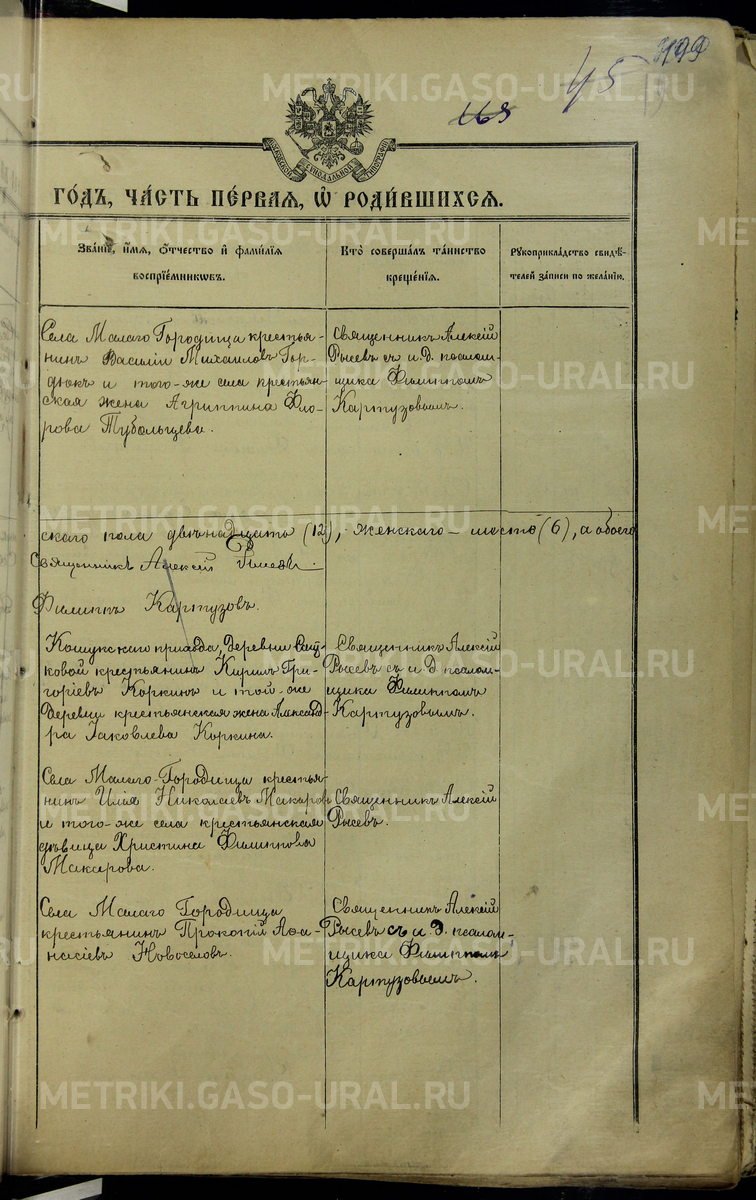 METRIKI.GASO-URAL.RU
45
168
МОСКОВСКОЙ СѴНОДАЛЬНОЙ ТИПОГРАФІИ
ГО́ДЪ, ЧА́СТЬ ПЕ́РВАЯ, Ѽ РОДИ́ВШИХСЯ.
Зва́ніе, и҆́мя, ѻ҆́тчество и҆ фами́лія
воспріе́мниковъ.
Кто̀ соверша́лъ та́инство
креще́нія.
Рукоприкла́дство свидѣ́-
телей за́писи по жела́нію.
Села Малаго Городища крестья-
нинъ Василій Михаиловъ Гор-
дюкъ и того-же села крестьян-
ская жена Агриппина Фло-
рова Тубольцева.
Священникъ Алексій
Рысевъ съ и. д. псалом-
щика Филиппомъ
Картузовымъ.
скаго пола двѣнадцать (12), женскаго – шесть (6), а обоего
Священникъ Алексій Рысевъ.
Филиппъ Картузовъ.
Кошукскаго прихода, деревни
ковой крестьянинъ Кирилъ Гри-
горіевъ Коркинъ и той-же
деревни крестьянская жена Александ-
ра Іаковлева Коркина.
Священникъ Алексій
Рысевъ съ и. д. псалом-
щика Филиппомъ
Картузовымъ.
Села Малаго-Городища крестья-
нинъ Илія Николаевъ Макаровъ
и того-же села крестьянская
дѣвица Христина Филиппова
Макарова.
Священникъ Алексій
Рысевъ.
Села Малаго Городища
крестьянинъ Прокопій Аѳа-
насіевъ Новоселовъ.
Священникъ Алексій
Рысевъ съ и. д. псалом-
щика Филиппомъ
Картузовымъ.
METRIKI.GASO-URAL.RU